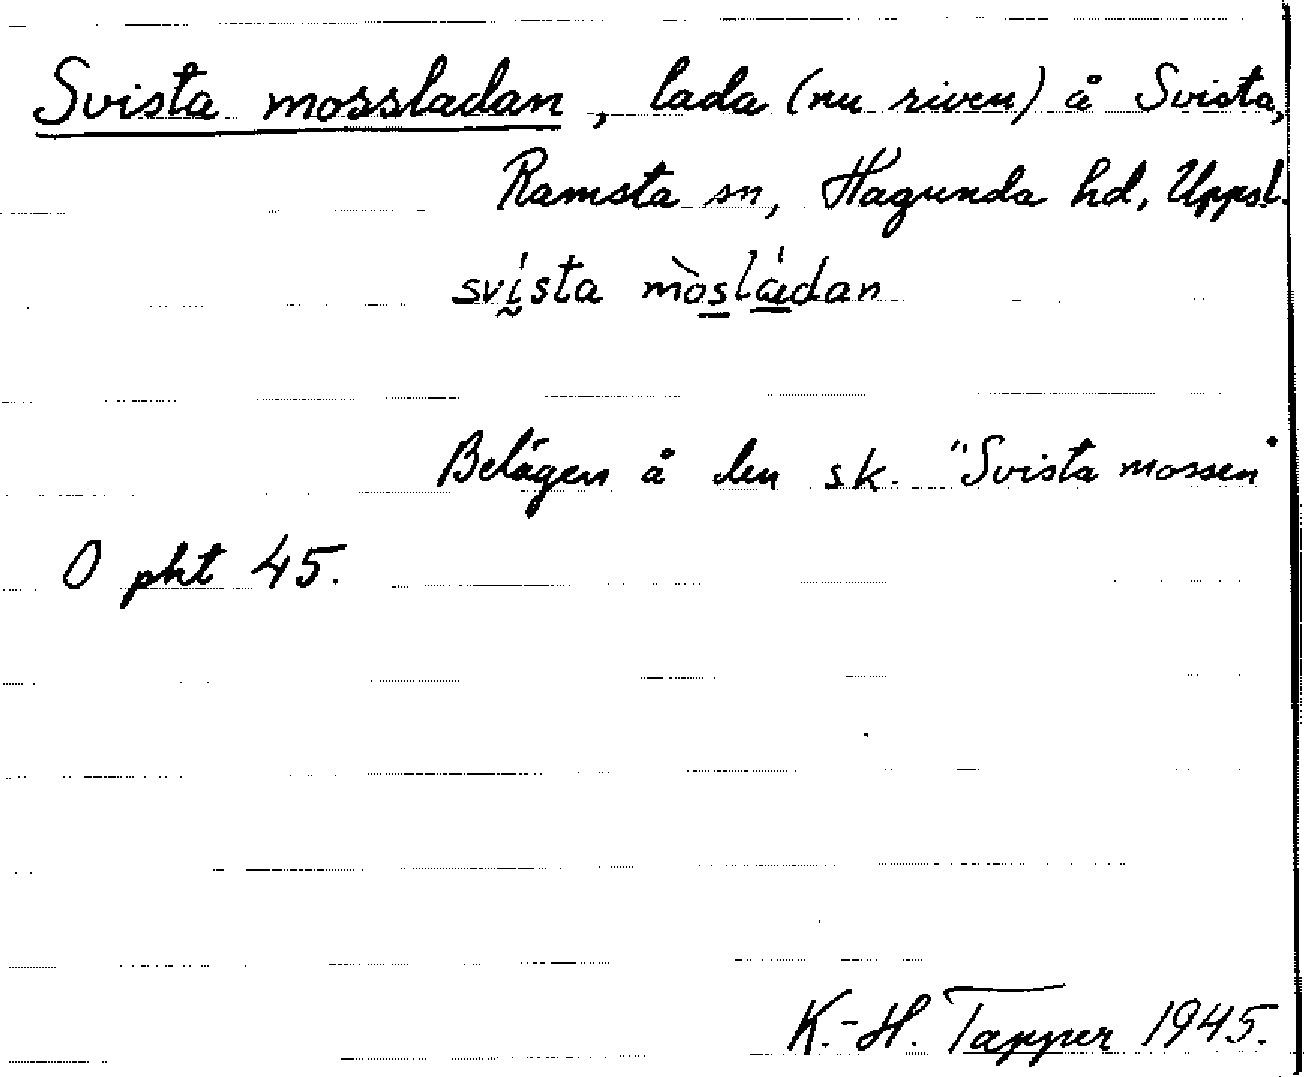 Svista mossladan, lada (nu riven) å Svista,
Ramsta sn, Hagunda hd, Uppsl.
svísta mòsládan
Belägen å den sk. "Svista mossen"
O pkt 45.
K.-H. Tapper 1945.